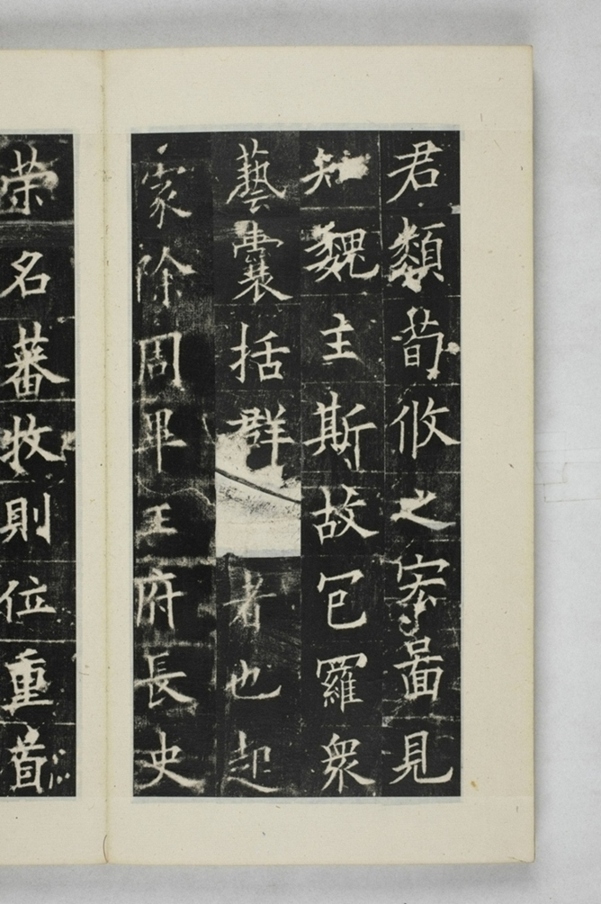 君類荀攸之宻啚見
知魏主斯故包羅衆
藝囊括群者也起
家除周畢王府長史
荣名蕃牧則位重首